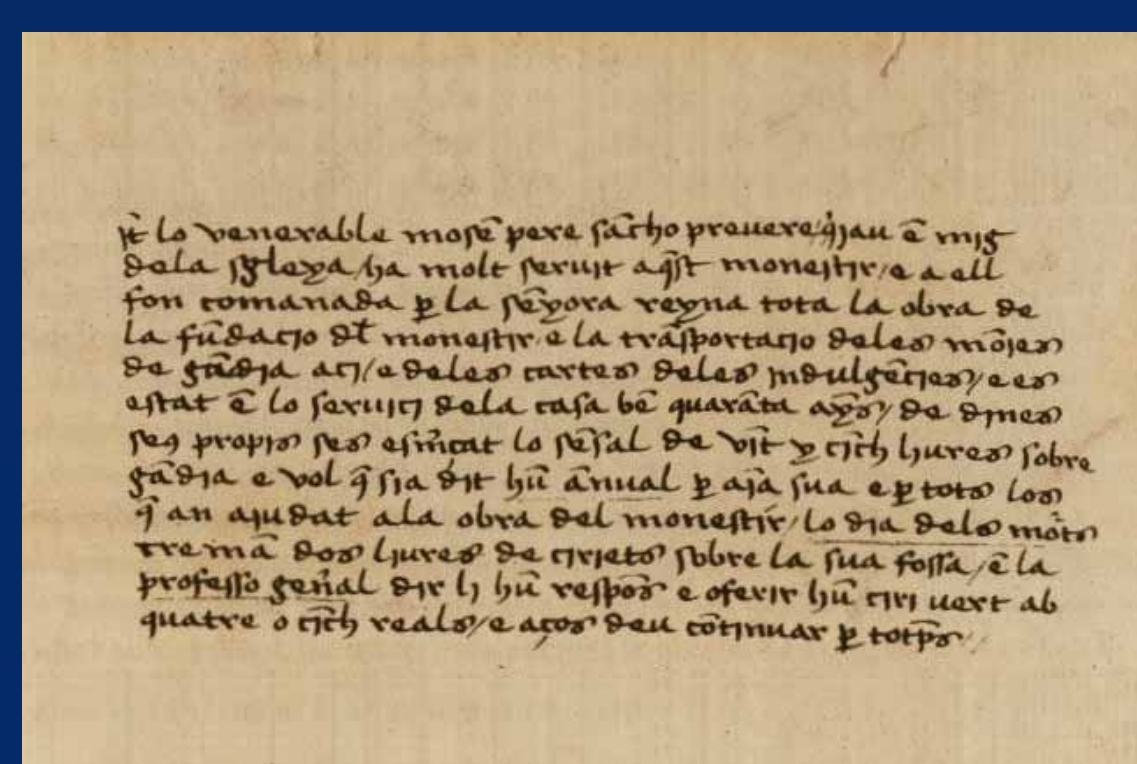 jt̄ lo venerable mosē pere sācho preuere / q̄ jau ē mig
dela sgleya / ha molt seruit aq̄st monestir / e a ell
fon comanada ꝑ la sēyora reyna tota la obra de
la fūdacio dl̄ monestir / e la trāsportacio deles mōjes
de gādia aci / e deles cartes deles jndulgēcies / e es
estat ē lo seruici dela casa bē quarāta ays̄ / de dines
seꝯ propis ses esm̄cat lo sēsal de vīt y cīch liures sobre
gādia e vol q̄ sia dit hū ānual ꝑ aīa sua e ꝑ tots los
q̄ an aiudat ala obra del monestir / lo dia dels mōts
cremā dos liures de ciriets sobre la sua fossa / ē la
professo gen̄al dir li hū respōs e oferir hū ciri vert ab
quatre o cīch reals / e aços deu cōtinuar ꝑ totp̄s //